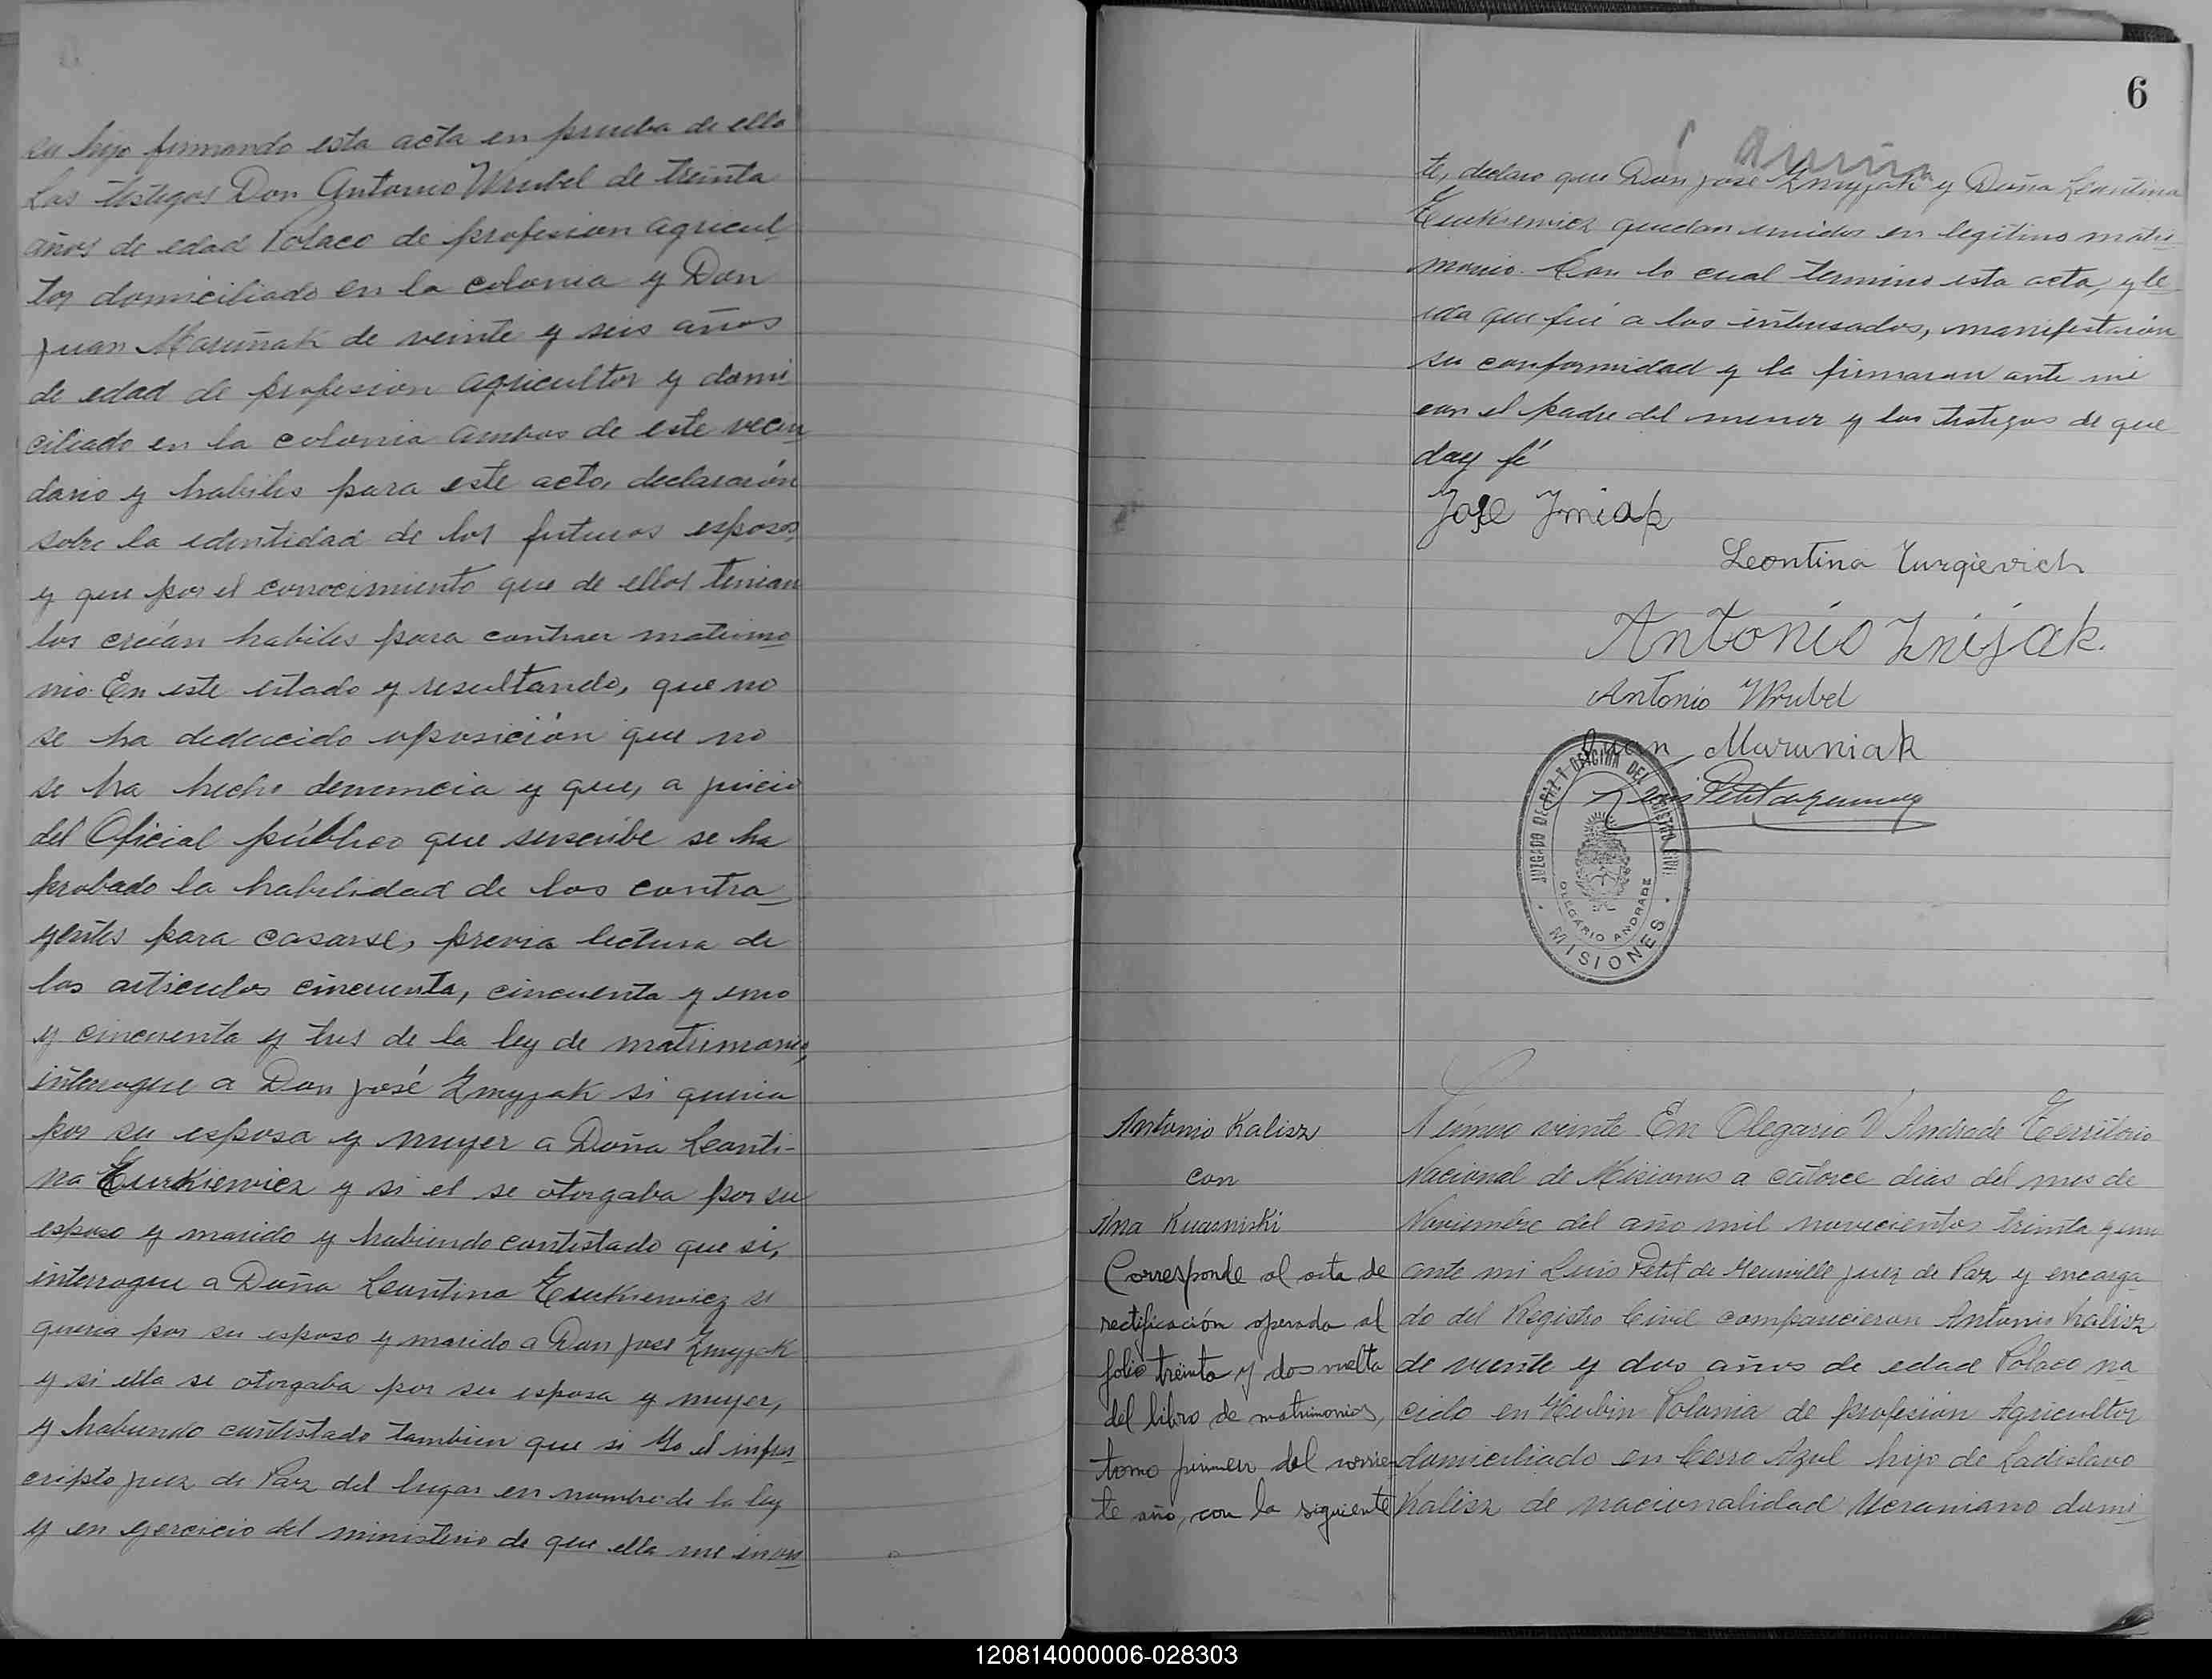 su hijo firmando esta acta en prueba de ello
los testigos Don Antonio Wrubel de treinta
años de edad Polaco de profesion agricul-
tor domiciliado en la colonia y Don
Juan Maruñak de veinte y seis años
de edad de profesion agricultor y domi
ciliado en la colonia ambos de este vecin
dario y habiles para este acto, declararón
sobre la identidad de los futuros esposos,
y que por el conocimiento que de ellos tenian
los creían habiles para contraer matrimo
nio. En este estado y resultando, que no
se ha deducido oposición que no
se ha hecho denuncia y que, a juicio
del Oficial público que suscribe se ha
probado la habilidad de los contra
yentes para casarse, previa lectura de
los articulos cincuenta, cincuenta y uno
y cincuenta y tres de la ley de matrimonio,
interrogue a Don José Zmyjak si queria
por su esposa y mujer a Doña Leonti-
na Turkiewicz y si el se otorgaba por su
esposo y marido y habiendo contestado que si,
interrogue a Doña Leontina Turkiewicz si
queria por su esposo y marido a Don José Zmyjak
y si ella se otorgaba por su esposa y mujer,
y habiendo contestado tambien que si Yo el infras
cripto juez de Paz del lugar en nombre de la ley
y en ejercicio del ministerio de que ella me inves
6
te, declaro que Don José Zmyjak y Doña Leontina
Turkiewicz quedan unidos en legitimo matri
monio. Con lo cual termino esta acta, y le
ida que fué a los interesados, manifestarón
su conformidad y la firmaron ante mi
con el padre del menor y los testigos de que
doy fé
José Zmiak
Leontina Turgievich
Antonio Znijak.
Antonio Wrubel
Juan Maruniak
Luis Petit de Meurville
JUZGADO DE PAZ Y OFICINA DEL REGISTRO CIVIL
OLEGARIO ANDRADE
MISIONES
Antonio Kalisz
con
Ana Kuasniski
Corresponde al acta de
rectificación operada al
folio treinta y dos vuelta
del libro de matrimonios,
tomo primero del corrien
te año, con la siguiente
Número veinte En Olegario V Andrade Territorio
Nacional de Misiones a catorce dias del mes de
Noviembre del año mil novecientos treinta y uno
ante mi Luis Petit de Meurville juez de Paz y encarga
do del Registro Civil comparecieron Antonio Kalisz
de veinte y dos años de edad Polaco na
cido en Polonia de profesión Agricultor
domiciliado en Cerro Azul hijo de Ladislavo
Kalisz de nacionalidad Ucraniano domi
120814000006-028303